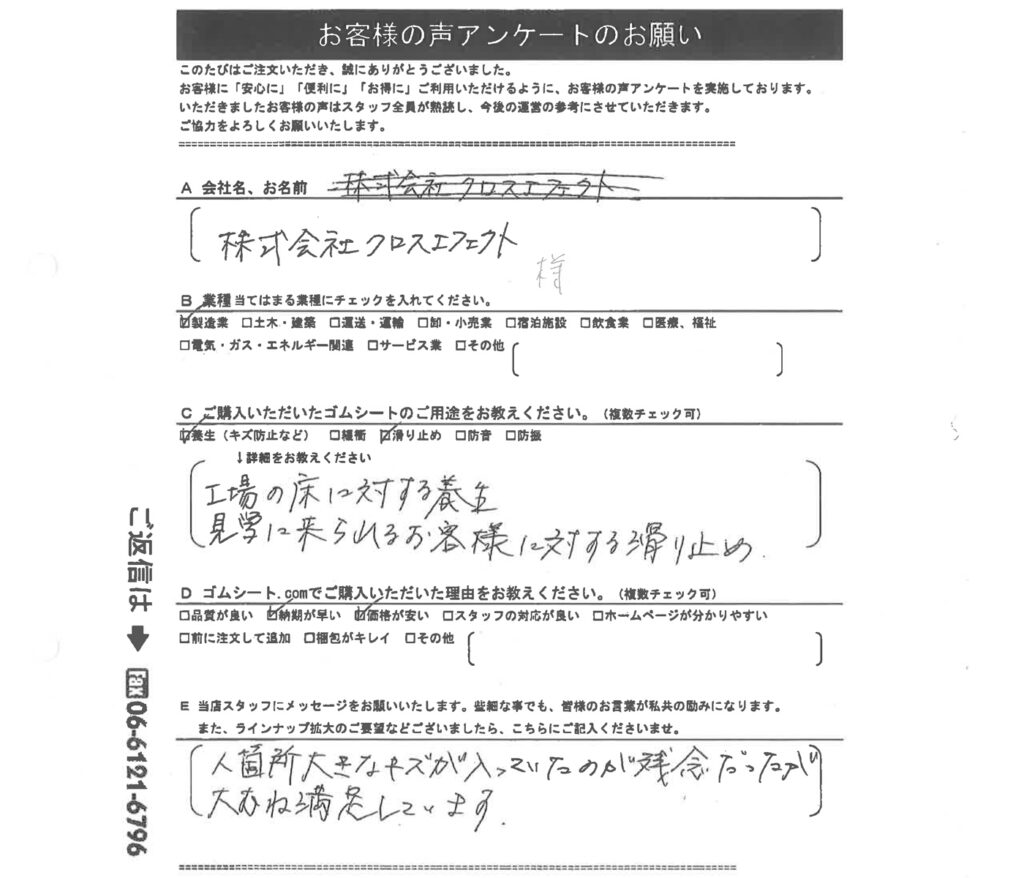 お客様の声アンケートのお願い
このたびはご注文いただき、誠にありがとうございました。
お客様に「安心に」「便利に」「お得に」ご利用いただけるように、お客様の声アンケートを実施しております。
いただきましたお客様の声はスタッフ全員が熟読し、今後の運営の参考にさせていただきます。
ご協力をよろしくお願いいたします。
A 会社名、お名前 株式会社クロスエフェクト
株式会社クロスエフェクト
様
B 業種当てはまる業種にチェックを入れてください。
☑製造業 □土木・建築 □運送・運輸 □卸・小売業 □宿泊施設 □飲食業 □医療、福祉
□電気・ガス・エネルギー関連 □サービス業 □その他
C ご購入いただいたゴムシートのご用途をお教えください。（複数チェック可）
☑養生（キズ防止など） □緩衝 ☑滑り止め □防音 □防振
↓詳細をお教えください
工場の床に対する養生
見学に来られるお客様に対する滑り止め.
D ゴムシート.comでご購入いただいた理由をお教えください。（複数チェック可）
□品質が良い ☑納期が早い ☑価格が安い □スタッフの対応が良い □ホームページが分かりやすい
□前に注文して追加 □梱包がキレイ □その他
E 当店スタッフにメッセージをお願いいたします。些細な事でも、皆様のお言葉が私共の励みになります。
また、ラインナップ拡大のご要望などございましたら、こちらにご記入くださいませ。
箇所大きなキズが入っていたのが残念だったが
大むね満足しています.
ご返信は➡fax06-6121-6796